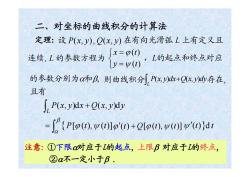 二、对坐标的曲线积分的计算法
定理: 设 P(x, y), Q(x, y) 在有向光滑弧 L 上有定义且
连续, L 的参数方程为 { x = φ(t) y = ψ(t) , L的起点和终点对应
的参数分别为α和β, 则曲线积分∫_L P(x,y)dx+Q(x,y)dy存在,
且有
∫_L P(x, y)dx + Q(x, y)dy
= ∫_α^β { P[φ(t), ψ(t)]φ′(t) + Q[φ(t), ψ(t)] ψ′(t)}dt
注意: ①下限α对应于L的起点, 上限β 对应于L的终点,
②α不一定小于β .